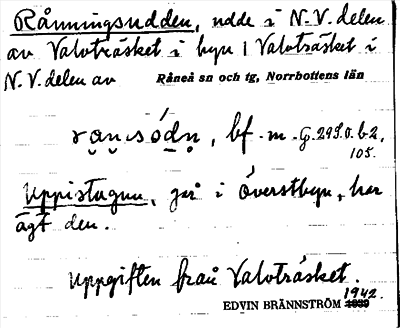 Rånningsudden, udde i N.V. delen
av Valvträsket i byn / Valvträsket i
N.V. delen av Råneå sn och tg, Norrbottens län
bf. m. G. 295.0. b-2,
105.
Uppistugun, går i Överstbyn, har
ägt den.
Uppgiften från Valvträsket.
1942.
EDVIN BRÄNNSTRÖM 1939